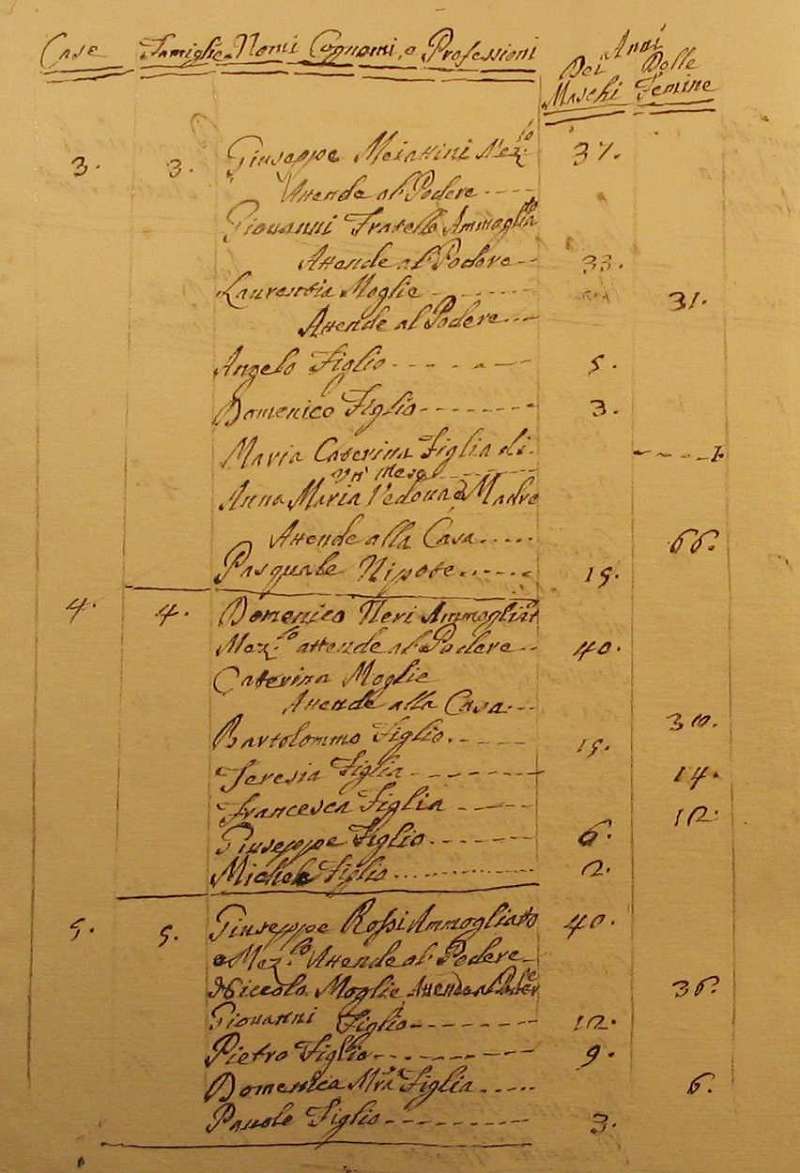 Anni
Case Famiglie Nomi Cognomi, e Professioni Dei Maschi Delle Femine
3. 3. Giuseppe Meiattini Mez.lo 37.
Attende al Podere
Giovanni Fratello Ammogliato
Attende al Podere 33.
Laurenzia Moglie 31.
Attende al Podere
Angelo Figlio 5.
Domenico Figlio 3.
Maria Caterina Figlia di 1.
un mese
Anna Maria Vedova e Madre
Attende alla Casa 66.
Pasquale Nipote 15.
4. 4. Domenico Neri Ammogliato
Mez.lo attende al Podere 40.
Caterina Moglie
Attende alla Casa 30.
Bartolommo Figlio 15.
Teresia Figlia 14.
Francesca Figlia 12.
Giuseppe Figlio 6.
Michele Figlio 2.
5. 5. Giuseppe Rossi Ammogliato 40.
e Mez.lo Attende al Podere
Moglie Attende al Pode 36.
Giovanni Figlio 12.
Pietro Figlio 9.
Domenica Mra Figlia 6.
Pauole Figlio 3.